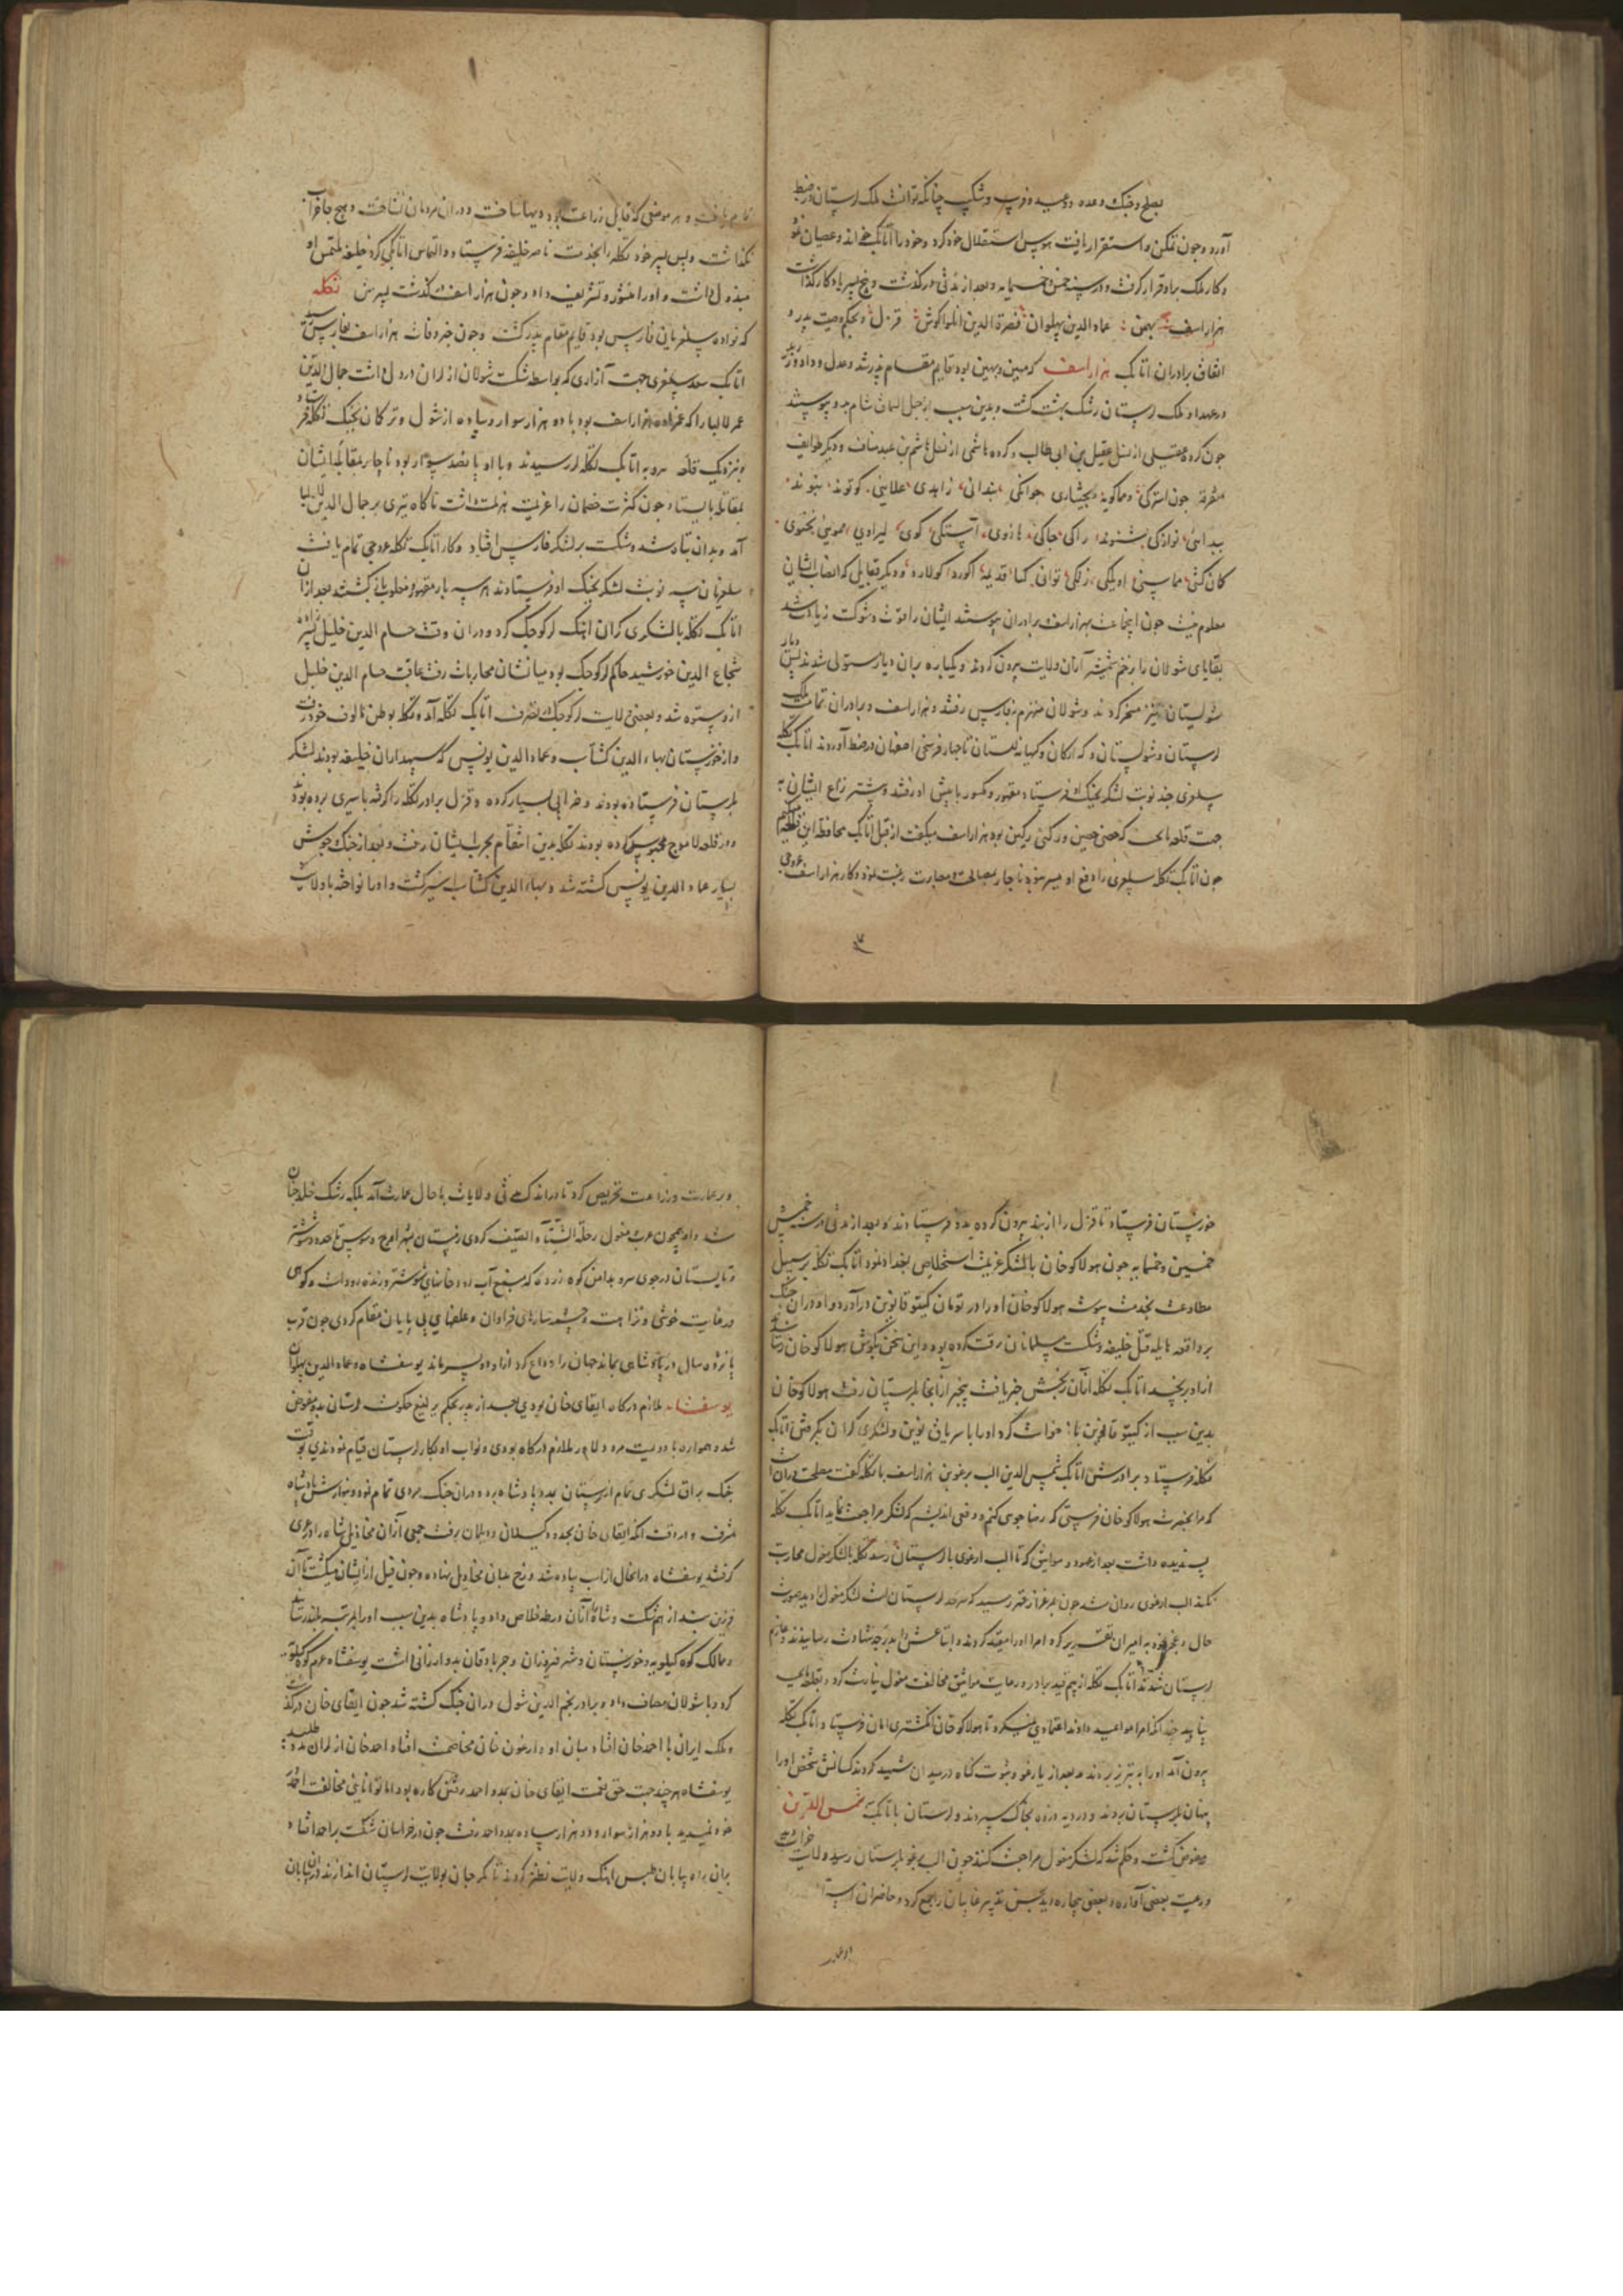 بصلح و جنگ و وعده و وعید و فریب و شکیب چنانکه توانست ملک لرستان در ضبط
آورد و چون تمکن و استقرار یافت هوس استقلال خود کرد و خود را اتابک خواند و عصیان نمود
و کار ملک برو قرار گرفت و در سنه خمسمایه و بعد از مدتی در گذشت و پنج پسر یادگار گذاشت
هزار اسف بهمن عماد الدین پهلوان نصرة الدین ایلواکوش قزل و بحکم وصیت پدر و
اتفاق برادران اتابک هزار اسف که مهین و بهین بود قایم مقام پدر شد و عدل و داد ورزید
در عهد او ملک لرستان رشک بهشت گشت و بدین سبب از جبل السماق شام بدو پیوستند
چون گروه عقیلی از نسل عقیل بن ابی طالب و گروه هاشمی از نسل هاشم بن عبد مناف و دیگر طوایف
متفرقه چون استرکی و مماکویه و بختیاری جوانکی بندانی زاهدی علایی کوتوند بتوند
بیدانی نوازکی شنوند راکی جاکی هارونی آستکی کوی لیراوی مموینی یحفوی
کمان کشی مماسنی اویکی زنکی توانی کیا قدیمه اکورد کولارد و دیگر قبایل که انساب ایشان
معلوم نیست چون این جماعت بهزار اسف و برادران پیوستند ایشان را قوت و شوکت زیادت شد
بقایای شولان را بزخم شمشیر آنان ولایت بیرون کردند و یکباره بران دیار مستولی شدند پس دیار
شولستان نیز مسخر کردند و شولان منهزم بفارس رفتند و هزار اسف و برادران تمامت ملک
لرستان و شولستان و که ارکان و کهپایه لستان تا چهار فرسخی اصفهان در ضبط آوردند اتابک تکله
سلغری چند نوبت لشکر بجنگ او فرستاد مقهور و مکسور با پیش او رفتند و بیشتر نزاع ایشان به
جهت قلعه مانجست که حصنی حصین و رکنی رکین بود هزار اسف میگفت از قبل اتابک محافظه این قلعه میکنم
چون اتابک تکله سلغری را دفع او میسر نبود ناچار بمصالحت و مصاهرت رغبت نمود و کار هزار اسف عروجی
تمام یافت و هر موضعی که قابل زراعت بود دیها ساخت و دران مردمان نشاخت و هیچ جا خراب
نگذاشت و پس پسر خود تکله را بخدمت ناصر خلیفه فرستاد و التماس اتابکی کرد خلیفه ملتمس او
مبذول داشت و او را منشور و تشریف داد و چون هزار اسف در گذشت پسرش تکله
که نواده سلغریان فارس بود قایم مقام پدر گشت و چون خبر وفات هزار اسف بفارس رسید
اتابک سعد سلغری جهت آزاری که بواسطه شکست شولان از لران در دل داشت جمال الدین
عمر لالبا را که عمزاده هزار اسف بود با دو هزار سوار و پیاده از شول و ترکان بجنگ تکله فرستاد
و نزدیک قلعه سرو به اتابک تکله رسیدند و با او پانصد سوار بود ناچار بمقابله ایشان
بمقابله بایستاد چون کثرت خصمان را عزیمت هزیمت داشت ناگاه تیری بر جمال الدین لالبا
آمد و بدان تباه شد و شکست بر لشکر فارس افتاد و کار اتابک تکله عروجی تمام یافت
سلغریان سه نوبت لشکر بجنگ او فرستادند هر سه بار مقهور و مخلوب باز گشتند بعد ازان
اتابک تکله با لشکری گران آهنگ لر کوچک کرد و دران وقت حسام الدین خلیل نبیره
شجاع الدین خورشید حاکم لر کوچک بود میانشان محاربات رفت عاقبت حسام الدین خلیل
ازو ستوه شد و بعضی ولایت لر کوچک در تصرف اتابک تکله آمد و تکله بوطن مالوف خود رفت
و از خوزستان بهاء الدین کشاب و عماد الدین یونس که سپهداران خلیفه بودند لشکر
بلرستان فرستاده بودند و خرابی بسیار کرده و قزل برادر تکله را گرفته باسیری برده بودند
و در قلعه لاموج محبوس کرده بودند تکله بدین انتقام بحرب ایشان رفت و بعد از جنگ و جوش
بسیار عماد الدین یونس کشته شد و بهاء الدین کشتاب اسیر گشت و او را نواخته با ولایت
خوزستان فرستاد تا قزل را از بند بیرون کرده بدو فرستادند و بعد از مدتی در سنه خمس
خمسین و خمسمایه چون هولاکو خان با لشکر عزیمت استخلاص بغداد نمود اتابک تکله بر سبیل
مطاوعت بخدمت پیوست هولاکو خان او را در تومان کیتو قانوین در آورد و او دران جنگ
بر واقعه هایله قتل خلیفه و شکست مسلمانان رقت کرده بود و این سخن بگوش هولاکو خان رسانیدند
ازو برنجید اتابک تکله از آن رنجش خبر یافت بیخبر از آنجا بلرستان رفت هولاکو خان
بدین سبب از کیتو قانوین باز خواست کرد او را با سریاق نوین و لشکری گران بگرفتن اتابک
تکله فرستاد برادرش اتابک شمس الدین الب ارغون هزار اسف با تکله گفت مصلحت در آنست
که مرا بحضرت هولاکو خان فرستی که رضا جوی کنم و دفعی اندیشم که لشکر مراجعت نماید اتابک تکله
پسندیده داشت بعد از عهود و مواثیق که تا الب ارغون با لرستان رسد تکله با لشکر مغول محاربت
نکند الب ارغون روان شد چون بمرغزار قرقه رسید که سرحد لرستان است لشکر مغول را دید صورت
حال و عزم خود به امیران تقریر کرد امرا او را مقید کردند و اتباعش را بدرجه شهادت رسانیدند و عازم
لرستان شدند اتابک تکله از بیم قید برادر و رعایت مواثیق مخالفت مغول نیارست کرد و بقلعه
پناهید چندانکه امرا مواعید دادند اعتمادی نمیکرد تا هولاکو خان انگشتری امان فرستاد و اتابک تکله
بیرون آمد او را به تبریز بردند و بعد از یارغو و ثبوت گناه در میدان شهید کردند کسانش شخص او را
پنهان بلرستان بردند و در دیه زرده بخاک سپردند و لرستان با اتابک شمس الدین
مفوض گشت و حکم شد که لشکر مغول مراجعت کنند چون الب ارغو بلرستان رسید ولایت خراب
و رعیت بعضی آواره و بعضی بیچاره دید بحسن تدبیر غایبان را جمع کرد و حاضران را
و بر عمارت و زراعت تحریص کرد تا در اندک مدتی ولایات با حال عمارت آمد بلکه رشک خلد جنان
شد و او همچون عرب و مغول رحلة الشتاء و الصیف کردی زمستان بشهر ایذج و سوسن تا حدود شوشتر
و تابستان در جوی سرد بدامن کوه زرده که منبع آب رود خانهای شوشتر و زنده رودست و کوهی
در غایت خوشی و نزاهت و چشمه سارهای فراوان و علفهای بی پایان مقام کردی چون قرب
پانزده سال در پادشاهی بماند جهان را وداع کرد ازو دو پسر ماند یوسفشاه و عماد الدین پهلوان
یوسفشاه ملازم درگاه ابقای خان بودی بعد از پدر بحکم یرلیغ حکومت لرستان بدو مفوض
شد و همواره با دویست مرد دلاور ملازم درگاه بودی و نواب او بکار لرستان قیام نمودندی بوقت
جنگ براق لشکری تمام از لرستان بمدد پادشاه بردی و دران جنگ مردی تمام نمودی و بنوازش پادشاه
مشرف و در وقت آنکه ابقای خان بحدود گیلان و دیلمان رفت جمعی از آن مخاذیل شاه را در عری
گرفتند یوسفشاه در حال از اسب پیاده شد و رخ میان مخاذیل نهاد و چون فیل از ایشان میکشت تا آن
فرزین بند از هم شکست و شاه را از آن ورطه خلاص داد و پادشاه بدین سبب او را بمرتبه بلند رسانید
و ممالک کوه کیلویه و خوزستان و شهر فیروزان و جرباذقان بدو ارزانی داشت یوسفشاه عزم کوه کیلویه
کرد و با شولان مصاف داد و برادر نجم الدین شول دران جنگ کشته شد چون ابقای خان درگذشت
و ملک ایران با احمد خان افتاد میان او و ارغون خان مخاصمت افتاد احمد خان از لران مدد طلبید
یوسفشاه هر چند جهت حق نعمت ابقای خان بمدد احمد رفتن کاره بود اما توانایی مخالفت احمد
خود نمیدید با دو هزار سوار و ده هزار پیاده بمدد احمد رفت چون در خراسان شکست بر احمد افتاد
بران راه بیابان طبس آهنگ ولایت نطنز کردند تا مگر جان بولایت لرستان اندازند دران بیابان